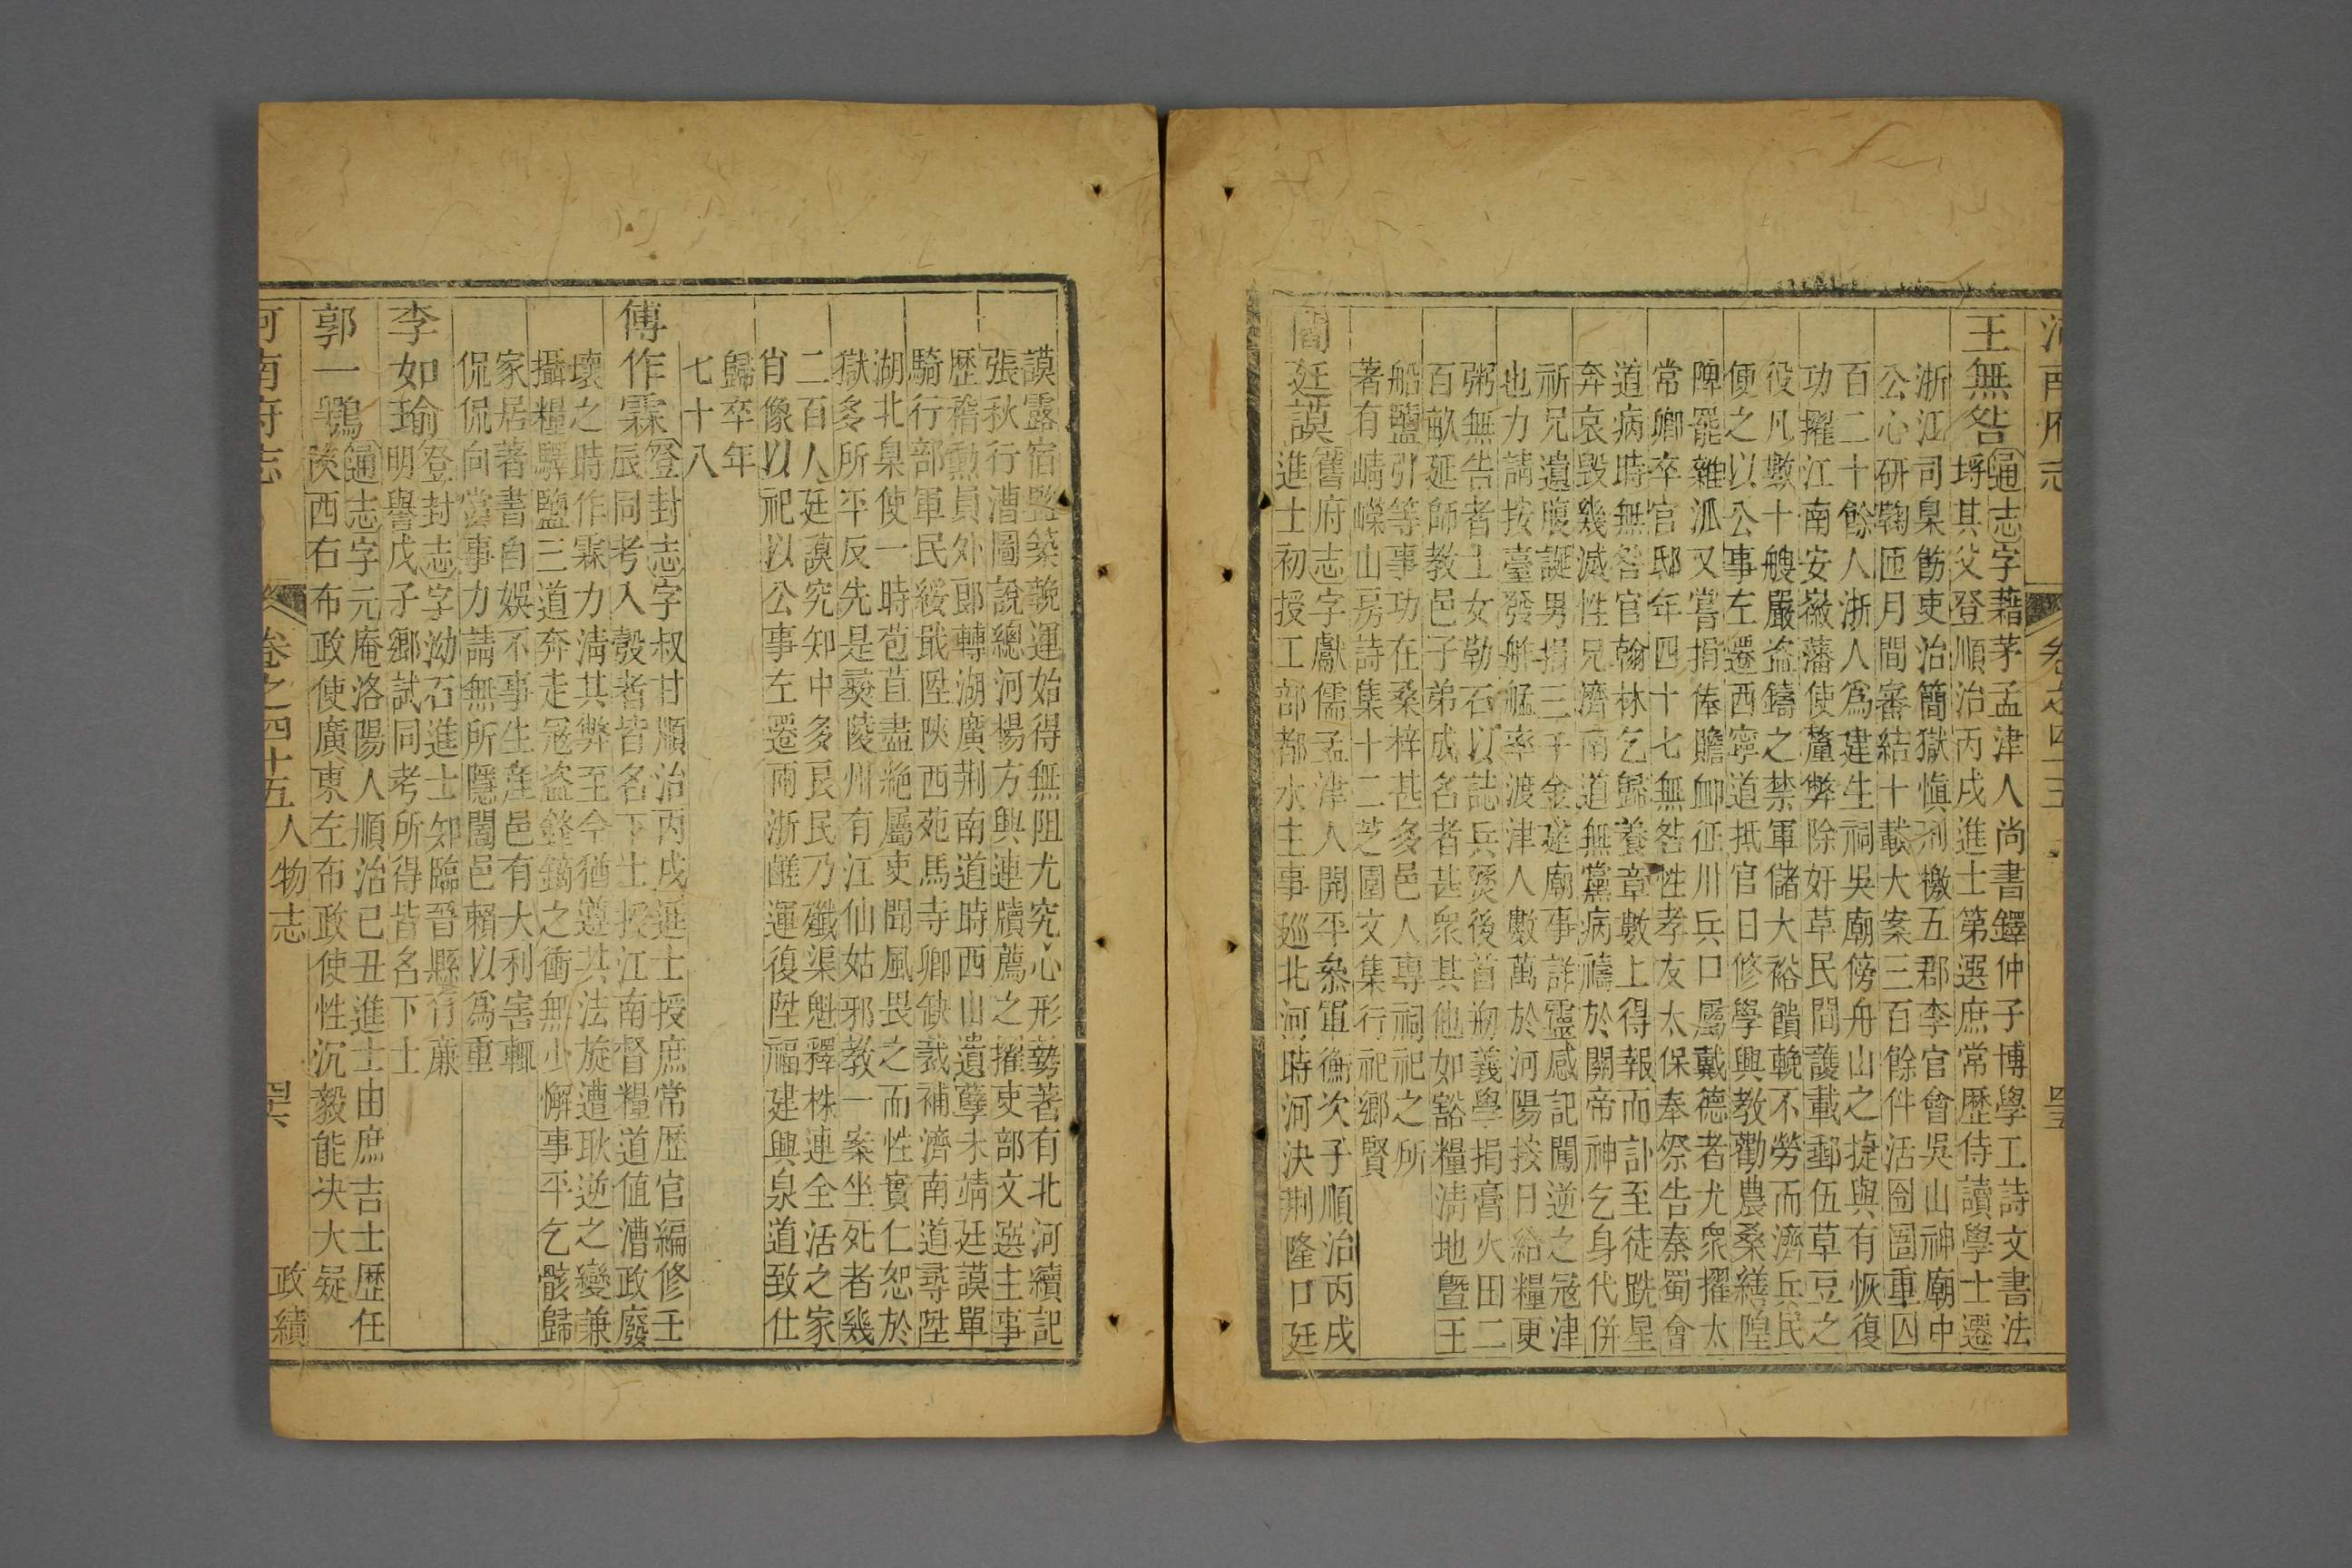 河南府志
卷之四十五
王無咎通志字藉茅孟津人尚書鐸仲子博學工詩文書法
埒其父登順治丙戌進士第選庶常歷侍讀學士遷
浙江司臬飭吏治簡獄愼刑檄五郡李官會吳山神廟中
公心研鞫匝月間審結十載大案三百餘件活囹圄重囚
百二十餘人浙人爲建生祠吳廟傍舟山之捷與有恢復
功擢江南安徽藩使釐弊除奸草民間護載郵伍草豆之
役凡數十艘嚴盗鑄之禁軍儲大裕饋輓不勞而濟兵民
便之以公事左遷西寧道抵官日修學興教勸農桑繕隍
陴罷雜派又嘗捐俸贍卹征川兵口屬戴德者尤衆擢太
常卿卒官邸年四十七無咎性孝友太保奉祭告秦蜀會
道病時無咎官翰林乞歸養章數上得報而訃至徒跣星
奔哀毀幾滅性兄濟南道無黨病禱於關帝神乞身代併
祈兄遺腹誕男捐三千金建廟事詳靈感記闖逆之冦津
也力請按臺發舴艋率渡津人數萬於河陽按日給糧更
粥無告者士女勒石以誌兵燹後首剏義學捐膏火田二
百畝延師教邑子弟成名者甚衆其他如豁糧淸地暨王
船鹽引等事功在桑梓甚多邑人專祠祀之所
著有嶹嶸山房詩集十二芝圃文集行祀鄉賢
閻廷謨舊府志字獻儒孟津人開平叅軍衡次子順治丙戌
進士初授工部都水主事廵北河時河決荆隆口廷
謨露宿壂築輓運始得無阻尤究心形勢著有北河續記
張秋行漕圖說總河楊方興連牘薦之擢吏部文選主事
歷稽勳員外郞轉湖廣荆南道時西山遺孽未靖廷謨單
騎行部軍民綏戢陞陝西苑馬寺卿缺裁補濟南道尋陞
湖北臬使一時苞苴盡絶屬吏聞風畏之而性實仁恕於
獄多所平反先是夷陵州有江仙姑邪教一案坐死者幾
二百人廷謨究知中多良民乃殲渠魁釋株連全活之家
肖像以祀以公事左遷兩浙鹺運復陞福建興泉道致仕
歸卒年
七十八
傅作霖登封志字叔甘順治丙戌進士授庶常歷官編修壬
辰同考入彀者皆名下士授江南督糧道值漕政廢
壞之時作霖力淸其弊至今猶遵其法旋遭耿逆之變兼
攝糧驛鹽三道奔走冦盗鋒鏑之衝無少懈事平乞骸歸
家居著書自娛不事生產邑有大利害輒
侃侃向當事力請無所隱閭邑賴以爲重
李如瑜登封志字泑石進士知臨晉縣行㢘
明譽戊子鄉試同考所得皆名下士
郭一鶚通志字元庵洛陽人順治已丑進士由庶吉士歷任
陝西右布政使廣東左布政使性沉毅能决大疑
河南府志
卷之四十五人物志
政績